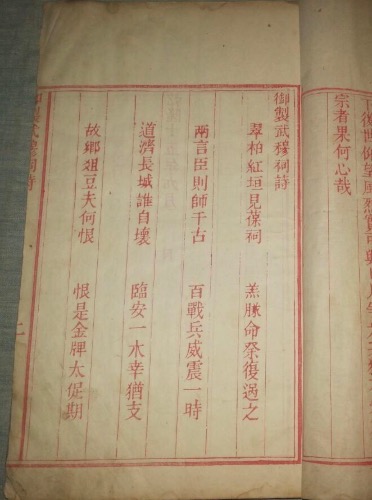 宗者果何心哉
御製武穆祠詩
翠柏紅垣見葆祠 羔豚命祭復過之
兩言臣則師千古 百戰兵威震一時
道濟長城誰自壞 臨安一木幸猶支
故鄉俎豆夫何恨 恨是金牌太促期
御製武穆祠詩
二